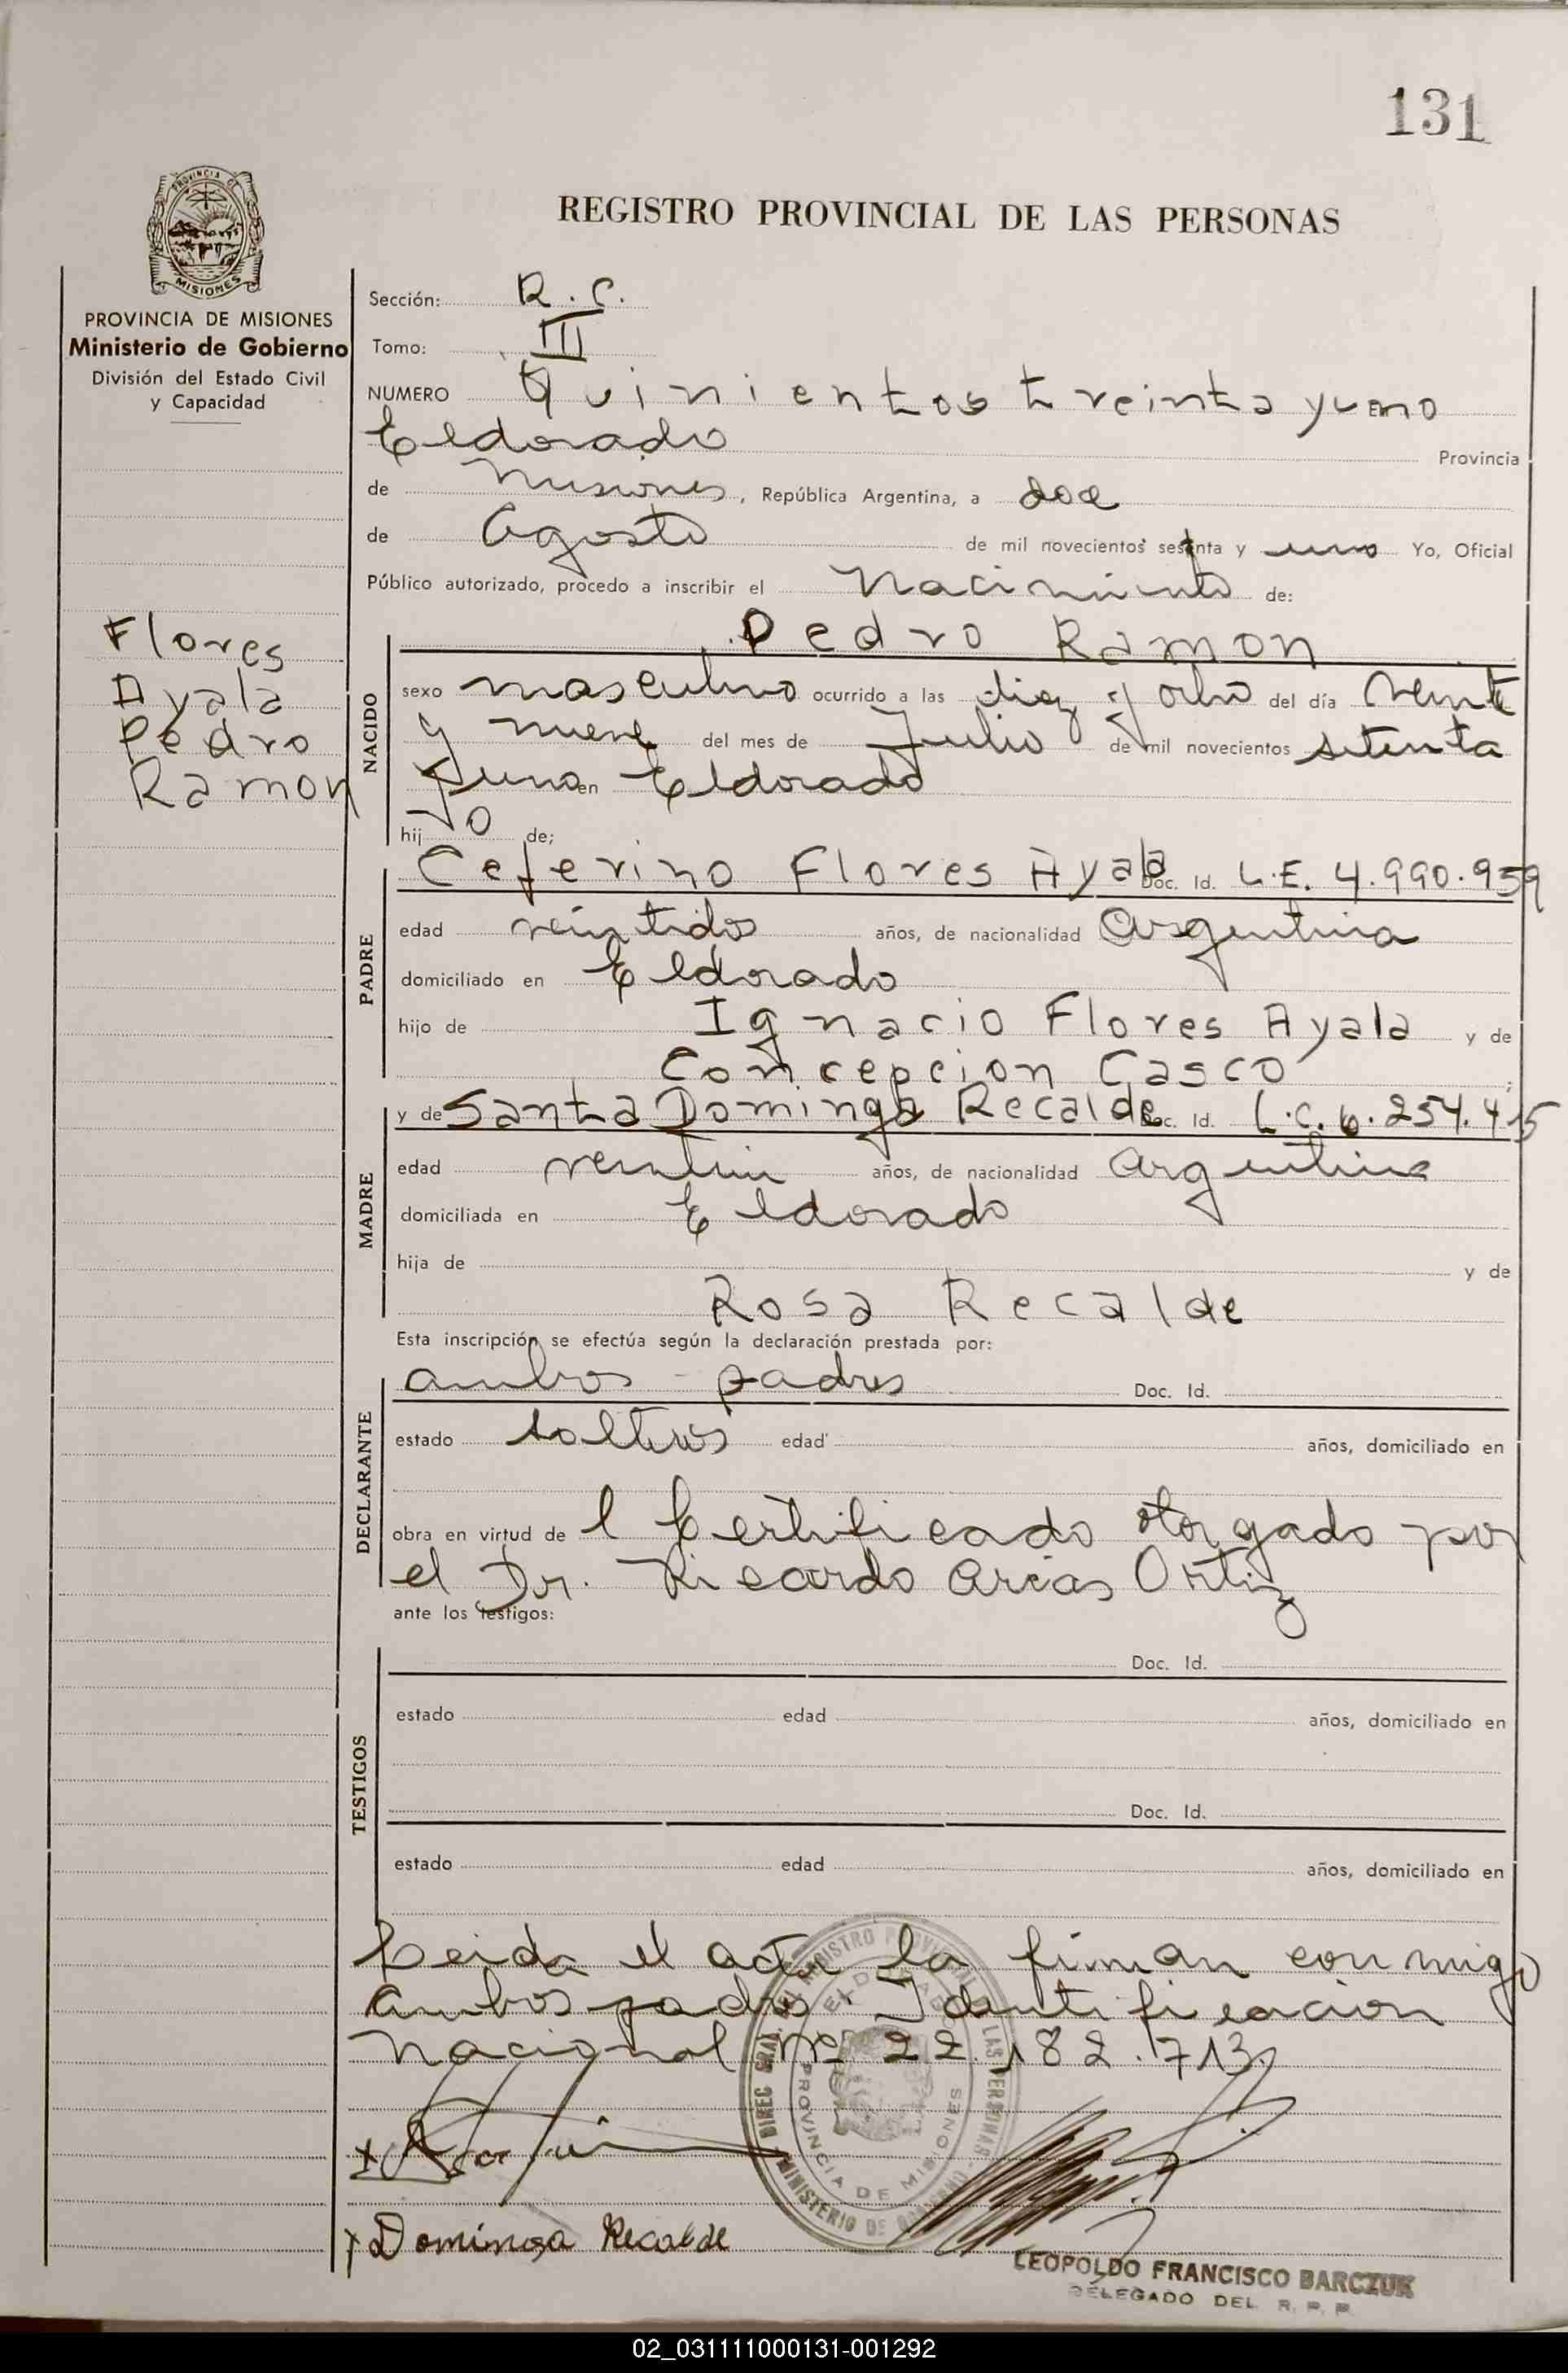 131
PROVINCIA DE
MISIONES
REGISTRO PROVINCIAL DE LAS PERSONAS
PROVINCIA DE MISIONES
Ministerio de Gobierno
División del Estado Civil
y Capacidad
Flores
Ayala
Pedro
Ramon
Sección: R. C.
Tomo: III
NUMERO Quinientos treinta y uno
Eldorado Provincia
de Misiones, República Argentina, a doce
de Agosto de mil novecientos setenta y uno Yo, Oficial
Público autorizado, procedo a inscribir el Nacimiento de:
Pedro Ramon
NACIDO
sexo masculino ocurrido a las diez y ocho del día veinte
y nueve del mes de Julio de mil novecientos setenta
y uno en Eldorado
hijo de;
PADRE
Ceferino Flores Ayala Doc. Id. L.E. 4.990.959
edad veintidos años, de nacionalidad Argentina
domiciliado en Eldorado
hijo de Ignacio Flores Ayala y de
Concepcion Casco ;
MADRE
y de Santa Dominga Recalde Doc. Id. L.C. 6.254.415
edad veintiun años, de nacionalidad argentina
domiciliada en Eldorado
hija de y de
Rosa Recalde
Esta inscripción se efectúa según la declaración prestada por:
DECLARANTE
ambos - padres Doc. Id.
estado solteros edad años, domiciliado en
obra en virtud de l Certificado otorgado por
el Dr. Ricardo Arias Ortiz
ante los testigos:
TESTIGOS
Doc. Id.
estado edad años, domiciliado en
Doc. Id.
estado edad años, domiciliado en
Leida el acta la firman conmigo
ambos padres. Identificacion
Nacional Nº 22.182.713
DIREC GRAL. DEL REGISTRO PROVINCIAL DE LAS PERSONAS - MINISTERIO DE GOBIERNO
ELDORADO
PROVINCIA DE MISIONES
x Dominga Recalde
LEOPOLDO FRANCISCO BARCZUK
DELEGADO DEL R. P. P.
02_031111000131-001292